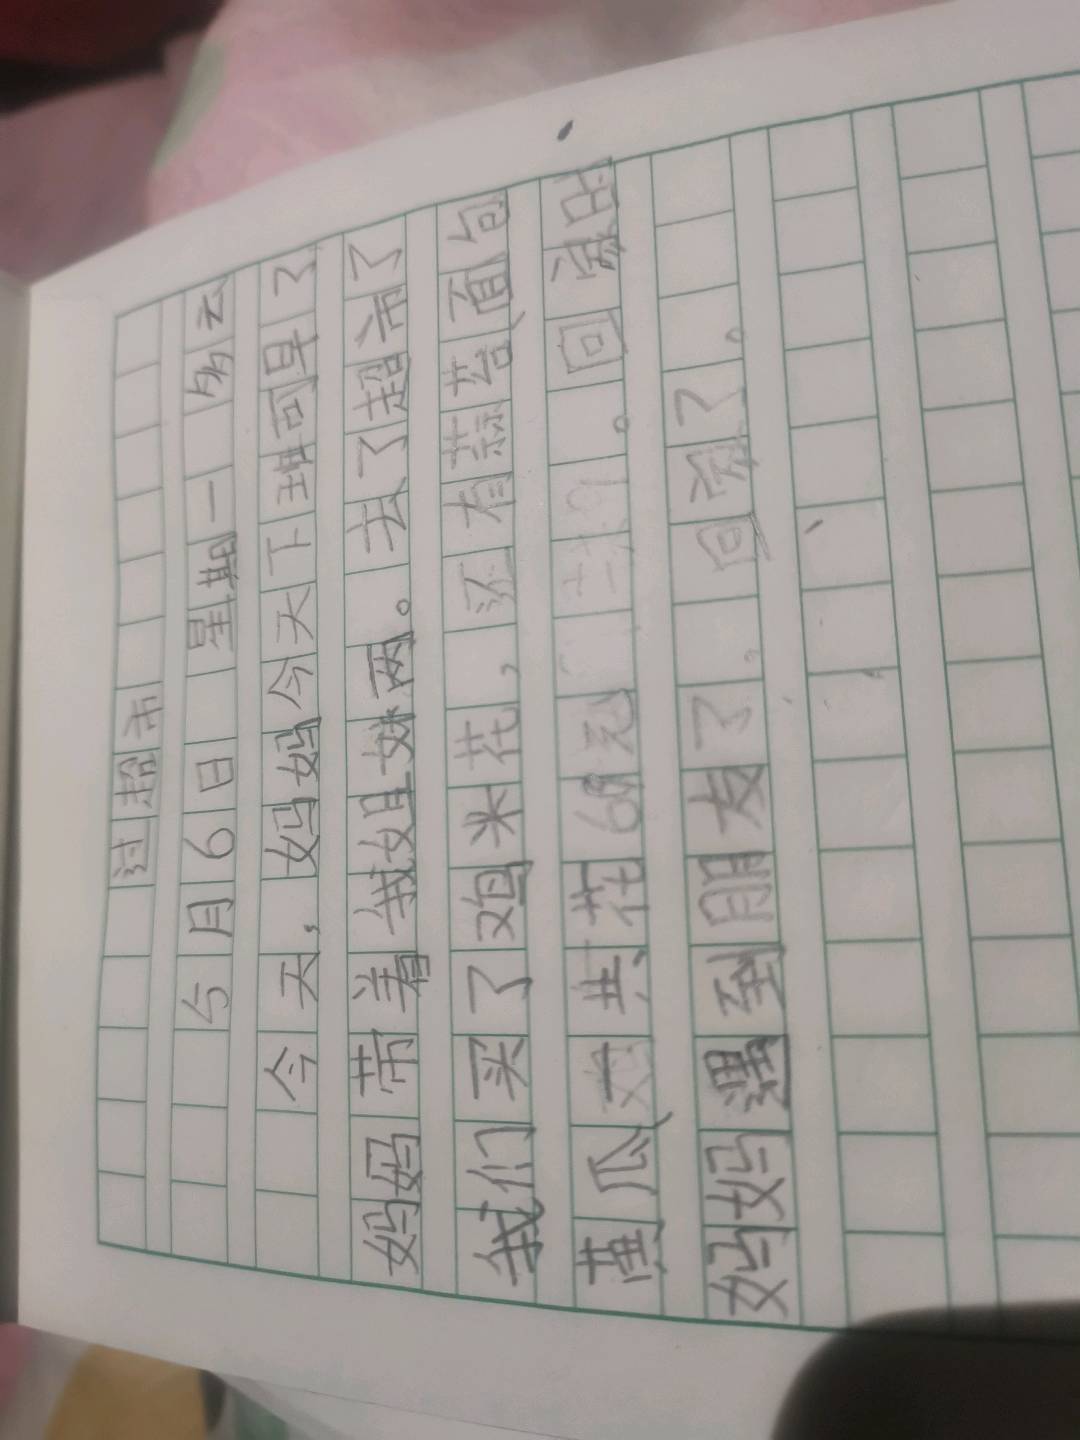 过超市
5月6日 星期一 多云
今天,妈妈今天下班可早了
妈妈带着我姐妹两。去了超市了
我们买了鸡米花,还有蒜苔、面包
黄瓜、共花69元 。回家
妈妈遇到朋友了。回家了。